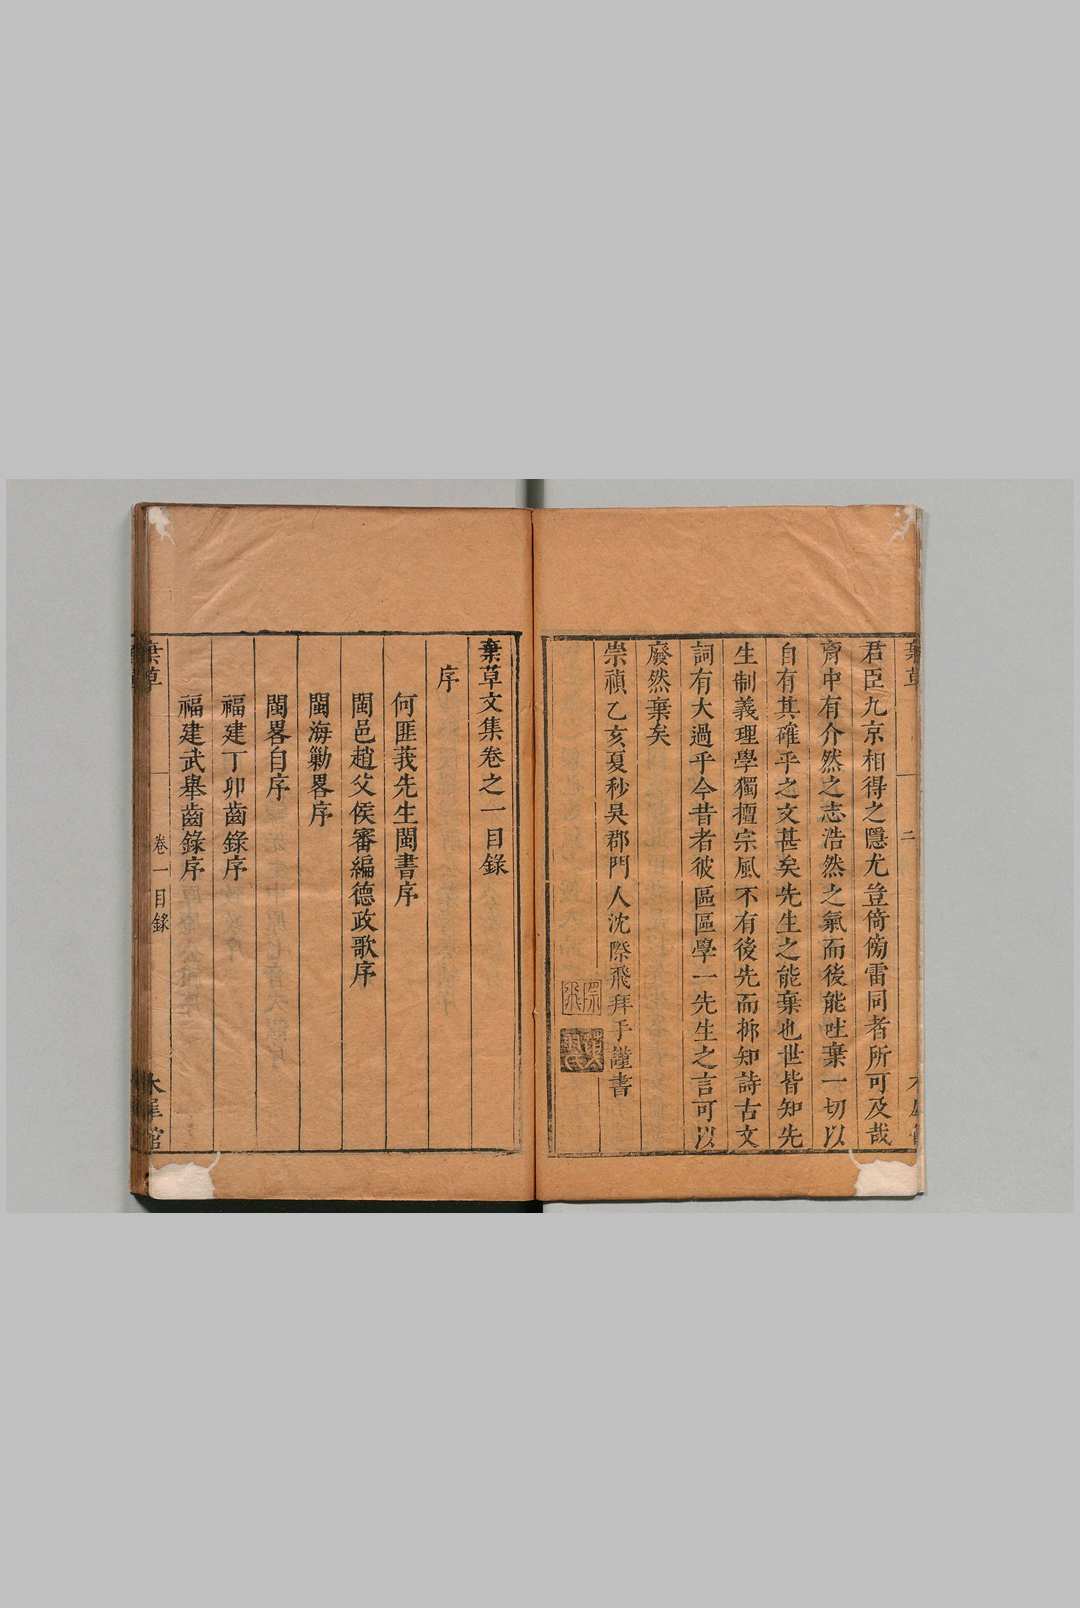 君臣九京相得之隱尤豈倚傍雷同者所可及哉
胷中有介然之志浩然之氣而後能吐棄一切以
自有其確乎之文甚矣先生之能棄也世皆知先
生制義理學獨擅宗風不有後先而抑知詩古文
詞有大過乎今昔者彼區區學一先生之言可以
廢然棄矣
崇禎乙亥夏秒吳郡門人沈際飛拜手謹書
棄草文集卷之一目錄
序
何匪莪先生閩書序
閩邑趙父侯審編德政歌序
閩海勦畧序
閩畧自序
福建丁卯齒錄序
福建武舉齒錄序
棄草
卷一目錄